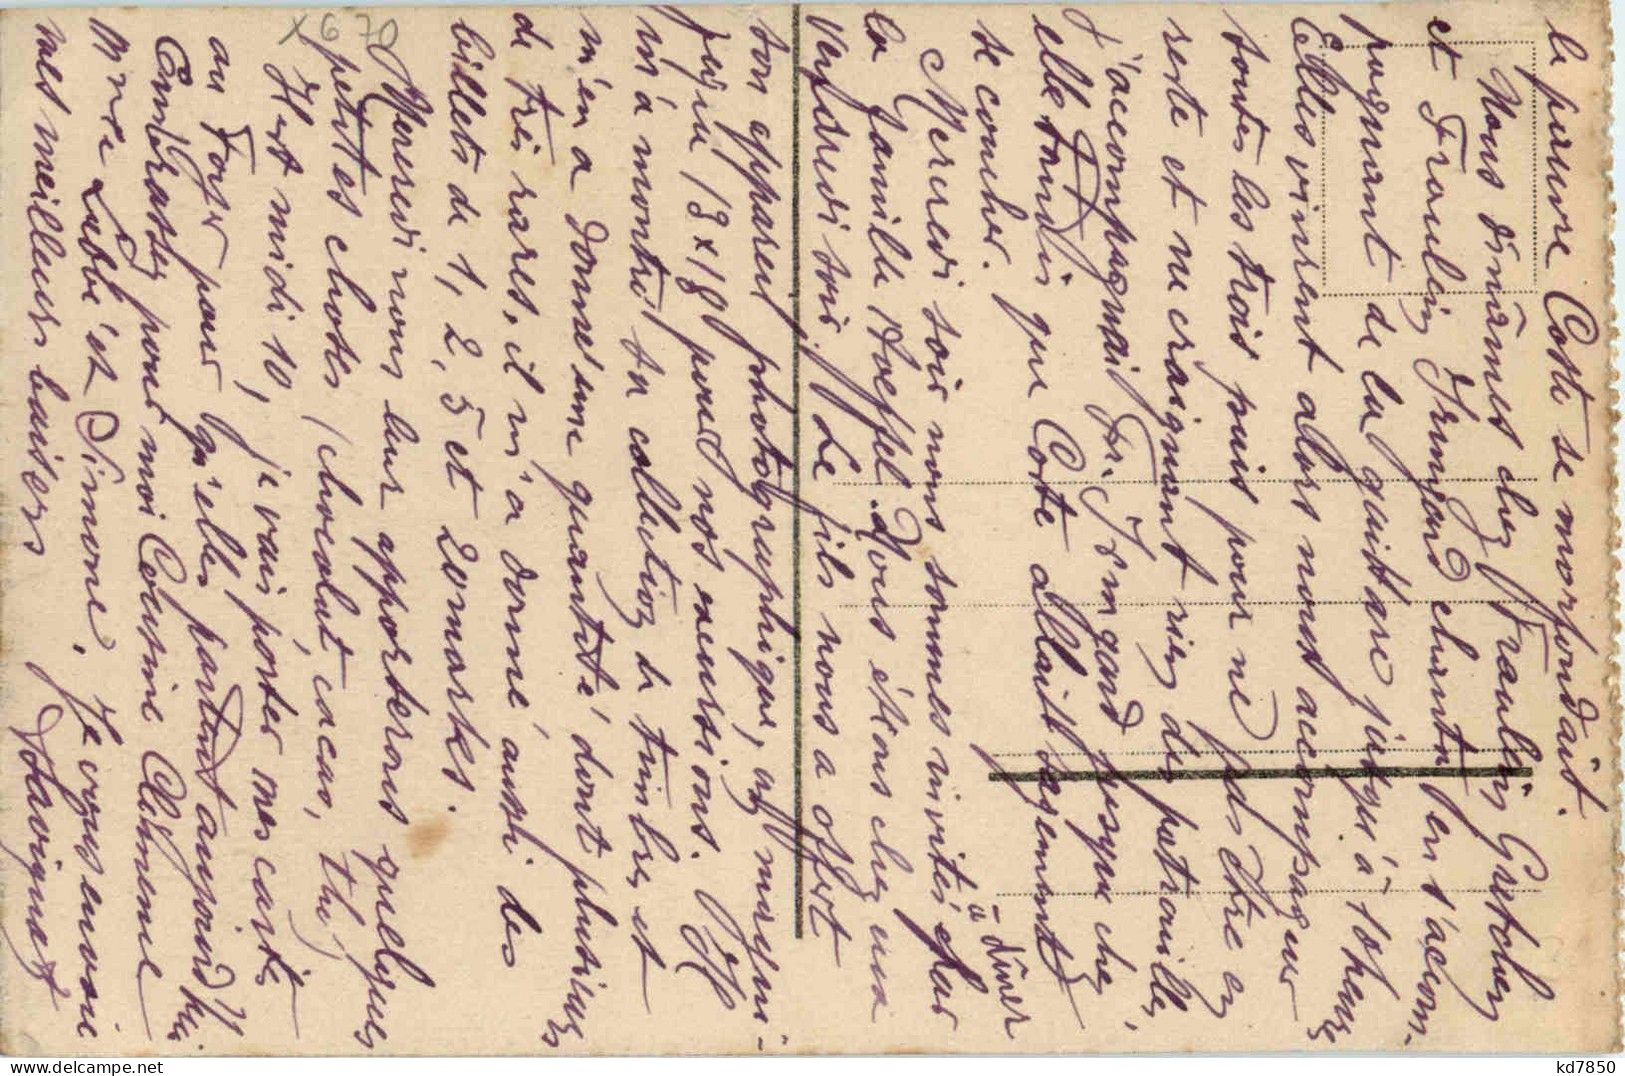 la pauvre Coste se morfondait.
Nous dînâmes chez Fraulein Gretchen
et Fraulein Irmgard chanta en s'accom-
pagnant de la guitare jusqu'à 10 heures
Elles vinrent alors nous accompagner
toutes les trois puis pour ne pas être en
reste et ne craignant rien des patrouilles,
j'accompagnai Fr. Irmgard jusque chez
elle tandis que Coste allait sagement
se coucher.
à dîner
Mercredi soir nous sommes invités par
la famille Hoeffel. Nous étions chez eux
vendredi soir. Le fils nous a offert
son appareil photographique, un magni-
fique 13x18 pour nos excursions. Il
m'a montré sa collection de timbres et
m'en a donné une quantité dont plusieurs
de très rares, il m'a donné aussi des
billets de 1, 2, 5 et 20 marks.
Mercredi nous leur apporterons quelques
petites choses (chocolat, cacao, thé)
Il est midi 10, je vais porter mes cartes
au Foyer pour qu'elles partent aujourd'hui
Embrassez pour moi Cousine Clémence
Mme Labbé et Simone. Je vous envoie
mes meilleurs baisers
X670
kd7850